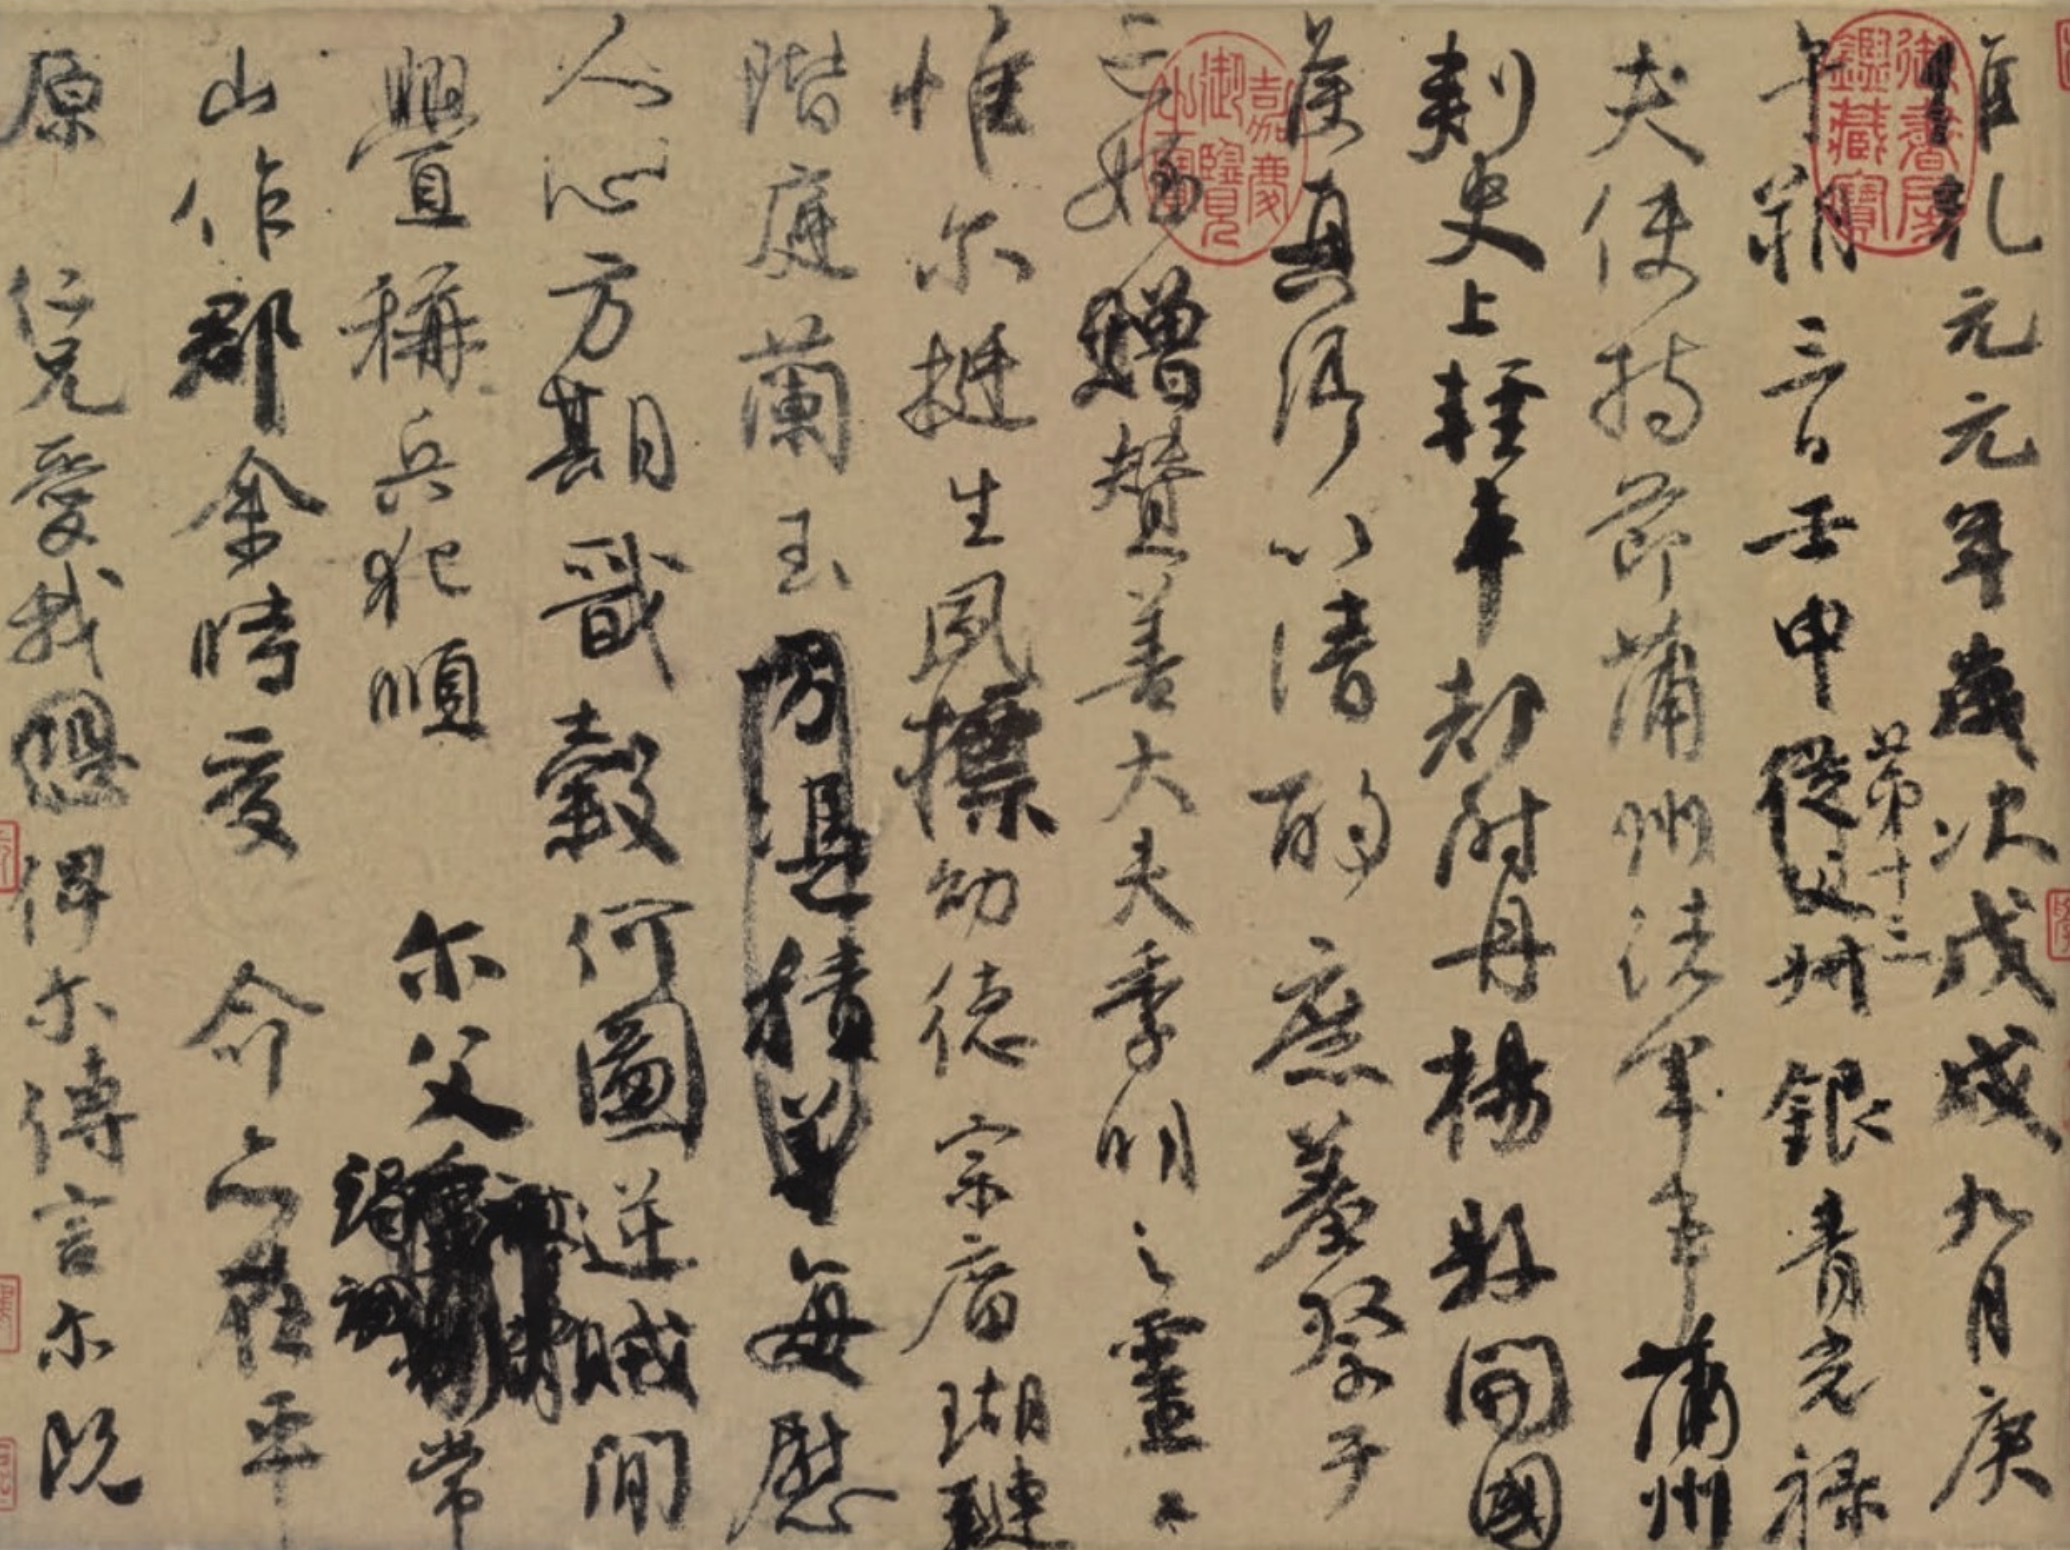 維乾元元年歲次戊戌九月庚
午朔三日壬申第十三從父叔銀青光祿
夫使持節蒲州諸軍事蒲州
刺史上輕車都尉丹楊縣開國
侯真卿以清酌庶羞祭于
亡姪贈贊善大夫季明之靈曰
惟爾挺生夙標幼德宗廟瑚璉
階庭蘭玉方憑積善每慰
人心方期戩穀何圖逆賊閒
釁稱兵犯順爾父竭誠常
山作郡余時受命亦在平
原仁兄愛我恐俾爾傳言爾既
御書房鑑藏寶
嘉慶御覽之寶